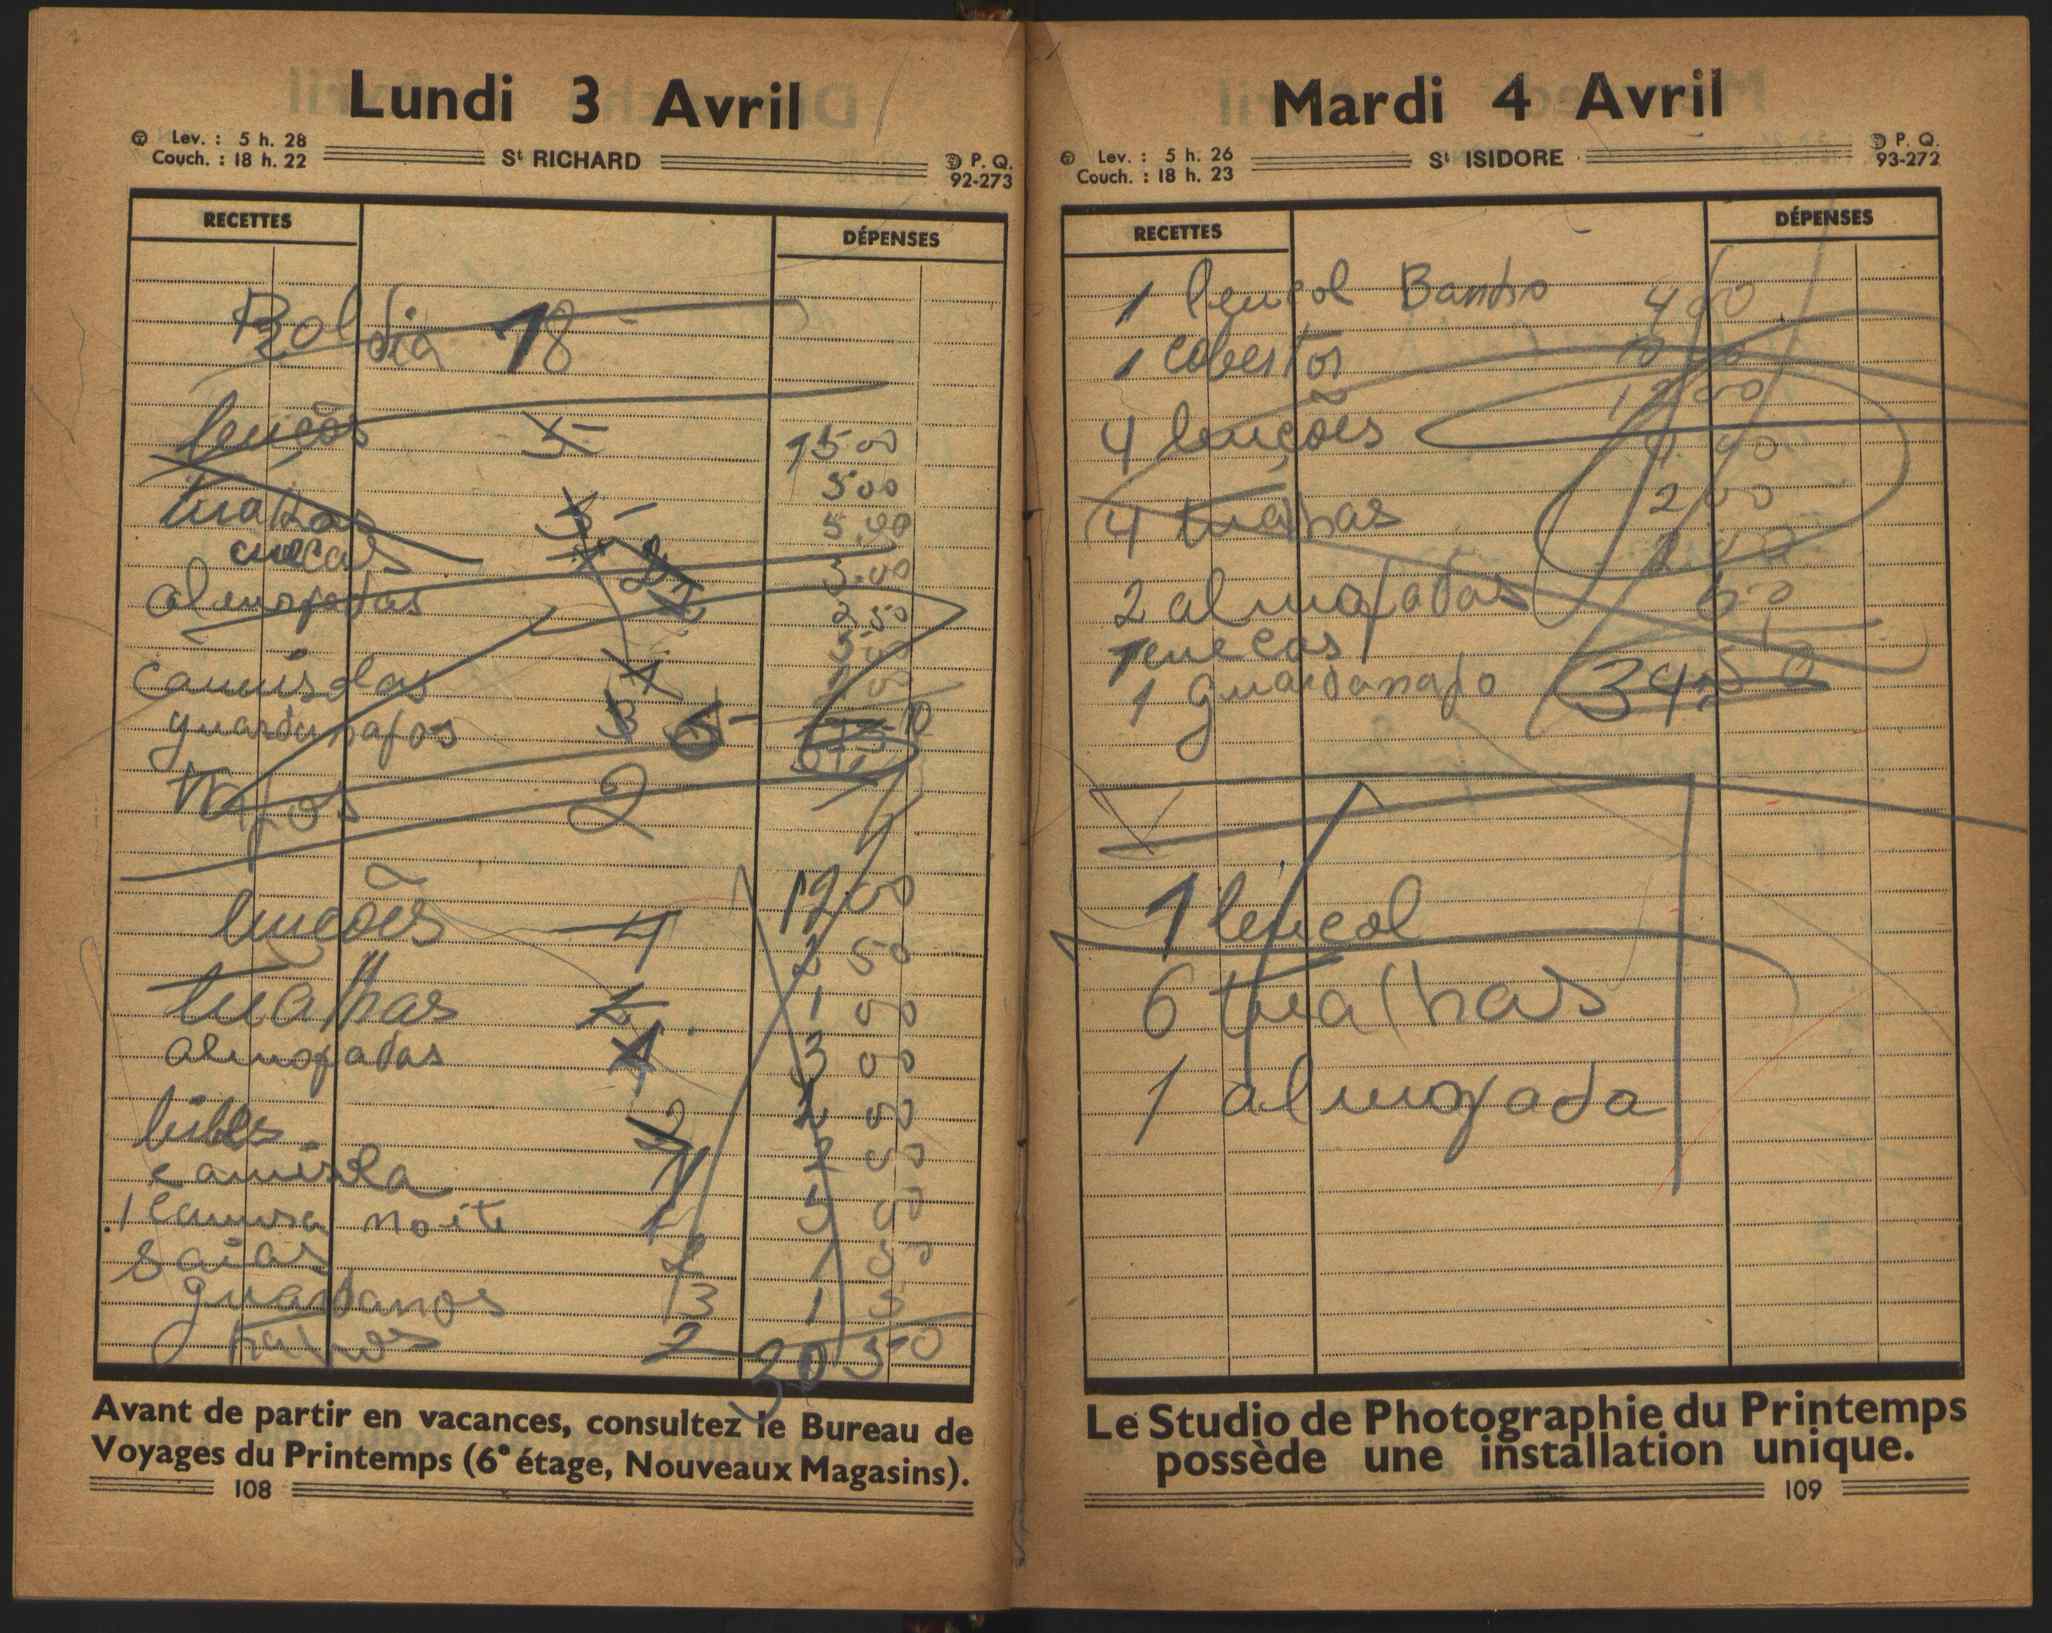 Lundi 3 Avril
Lev. : 5 h. 28
Couch. : 18 h. 22
St RICHARD
P. Q.
92-273
RECETTES
DÉPENSES
Rol dia 18
lençós 5 15.00
5.00
tualhas 5.00
cuecas 2 3.00
almofadas 2.50
camisolas
guardanapos 3
2
lençóes 4 12.00
2 50
tualhas 1 00
almofadas 4 3 00
bibes 2 00
camisola 1 2 00
1 camisa noite 1 5 00
Saias 2 1 50
guardanapos 3 1 5
panos 2 30.50
Avant de partir en vacances, consultez le Bureau de
Voyages du Printemps (6e étage, Nouveaux Magasins).
108
Mardi 4 Avril
Lev. : 5 h. 26
Couch. : 18 h. 23
St ISIDORE
P. Q.
93-272
RECETTES
DÉPENSES
1 lençol Banho 4 00
1 cobertor
12 00
4 lençóes
2 00
4 tualhas
2 almofadas 50
1 cuecas
1 guardanapo 34.50
1 lençol
6 tualhas
1 almofada
Le Studio de Photographie du Printemps
possède une installation unique.
109